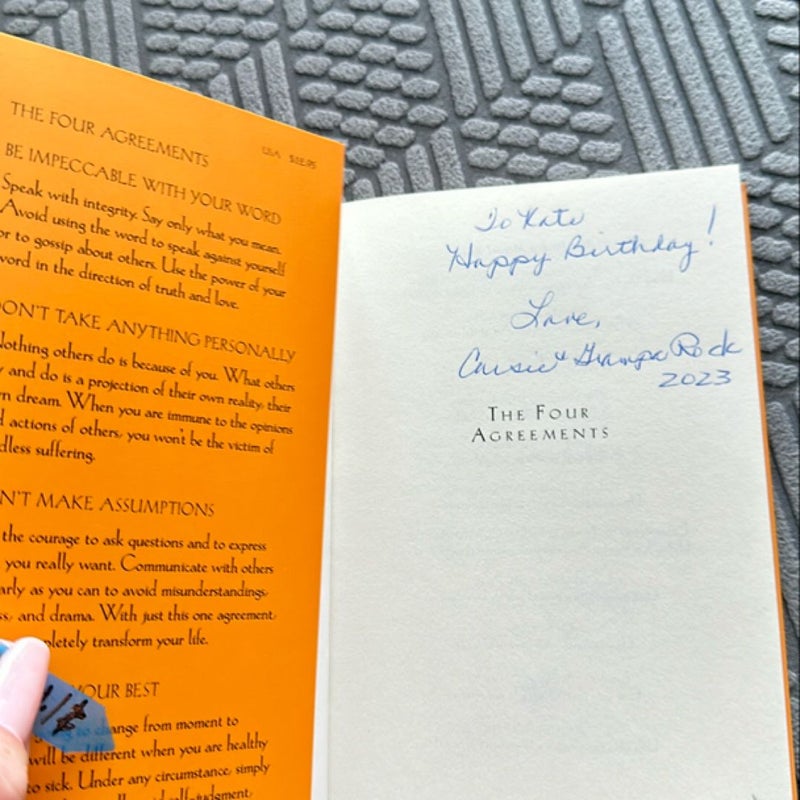 THE FOUR AGREEMENTS
USA $12.95
BE IMPECCABLE WITH YOUR WORD
Speak with integrity. Say only what you mean.
Avoid using the word to speak against yourself
or to gossip about others. Use the power of your
word in the direction of truth and love.
DON'T TAKE ANYTHING PERSONALLY
Nothing others do is because of you. What others
and do is a projection of their own reality, their
n dream. When you are immune to the opinions
d actions of others, you won't be the victim of
dless suffering.
N'T MAKE ASSUMPTIONS
the courage to ask questions and to express
you really want. Communicate with others
arly as you can to avoid misunderstandings,
ss, and drama. With just this one agreement,
pletely transform your life.
YOUR BEST
change from moment to
will be different when you are healthy
to sick. Under any circumstance, simply
self-judgment,
To Kate
Happy Birthday!
Love,
& Grampa Rock
2023
THE FOUR
AGREEMENTS